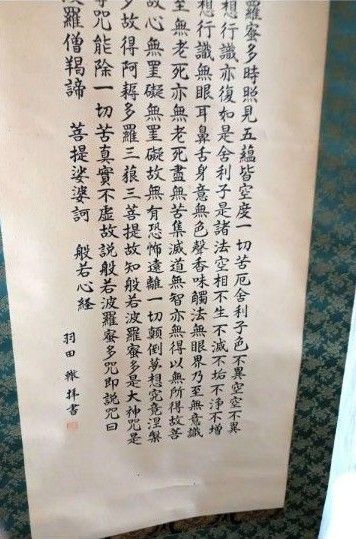 羅蜜多時照見五蘊皆空度一切苦厄舎利子色不異空空不異
想行識亦復如是舎利子是諸法空相不生不滅不垢不淨不増
想行識無眼耳鼻舌身意無色聲香味觸法無眼界乃至無意識
至無老死亦無老死盡無苦集滅道無智亦無得以無所得故菩
故心無罣礙無罣礙故無有恐怖遠離一切顛倒夢想究竟涅槃
多故得阿耨多羅三藐三菩提故知般若波羅蜜多是大神咒是
等咒能除一切苦真實不虚故説般若波羅蜜多咒即説咒曰
波羅僧羯諦 菩提娑婆訶 般若心経
羽田 書